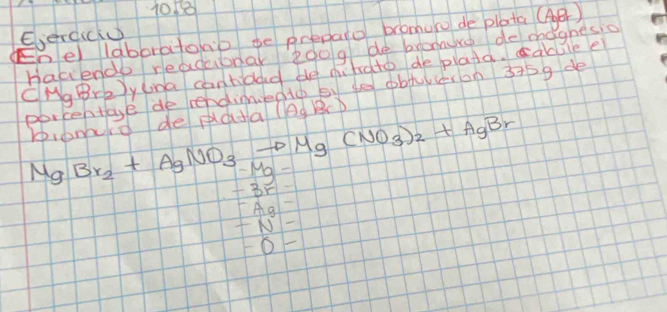 10.8
Ejercicio
En el laboratorio se preparo bromuro de plata (AgBr)
Haciendo reaccionar 200g de bromuro de magnesio
(MgBr2) y una cantidad de nitrato de plata. Calcule el
porcentaje de rendimiento si se obtuvieron 375g de
bromuro de plata (AgBr)
MgBr2 + AgNO3 → Mg (NO3)2 + AgBr
- Mg -
- Br -
- Ag -
- N -
- O -